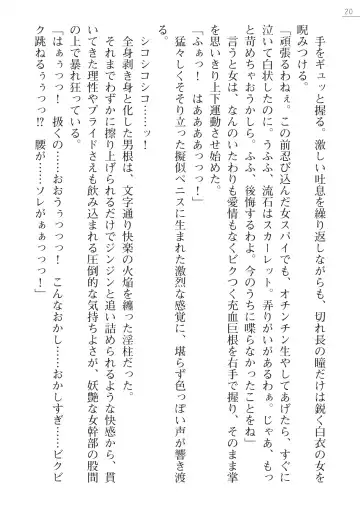 20
　手をギュッと握る。激しい吐息を繰り返しながらも、切れ長の瞳だけは鋭く白衣の女を
睨みつける。
「頑張るわねぇ。この前忍び込んだ女スパイでも、オチンチン生やしてあげたら、すぐに
泣いて白状したのに。うふふ、流石はスカーレット。弄りがいがあるわぁ。じゃぁ、もっ
と苛めちゃおうかしら。ふふ、後悔するわよ。今のうちに喋らなかったことをね」
　言うと女は、なんのいたわりも愛情もなくビクつく充血巨根を右手で握り、そのまま掌
を思いきり上下運動させ始めた。
「ふぁっ！　はああああっっっ！」
　猛々しくそそり立った擬似ペニスに生まれた激烈な感覚に、堪らず色っぽい声が響き渡
る。
　シコシコシコ……ッ！
　全身剥き身と化した男根は、文字通り快楽の火焔を纏った淫柱だった。
　それまでわずかに擦り上げられるだけでジンジンと追い詰められるような快感から、貫
いてきた理性やプライドさえも飲み込まれる圧倒的な気持ちよさが、妖艶な女幹部の股間
の上で暴れ狂っている。
「はぁぅっっ！　扱くの……おおうぅっっっ！　こんなおかし……おかしすぎ……ビクビ
ク跳ねるぅぅっっ!?　腰が……ソレがぁぁっっっ！」